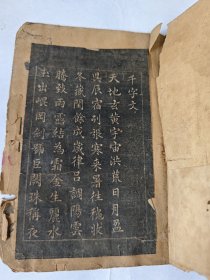 千字文
天地玄黃宇宙洪荒日月盈
昃辰宿列張寒來暑往秋收
冬藏閏餘成歲律呂調陽雲
騰致雨露結為霜金生麗水
玉出崐岡劍號巨闕珠稱夜